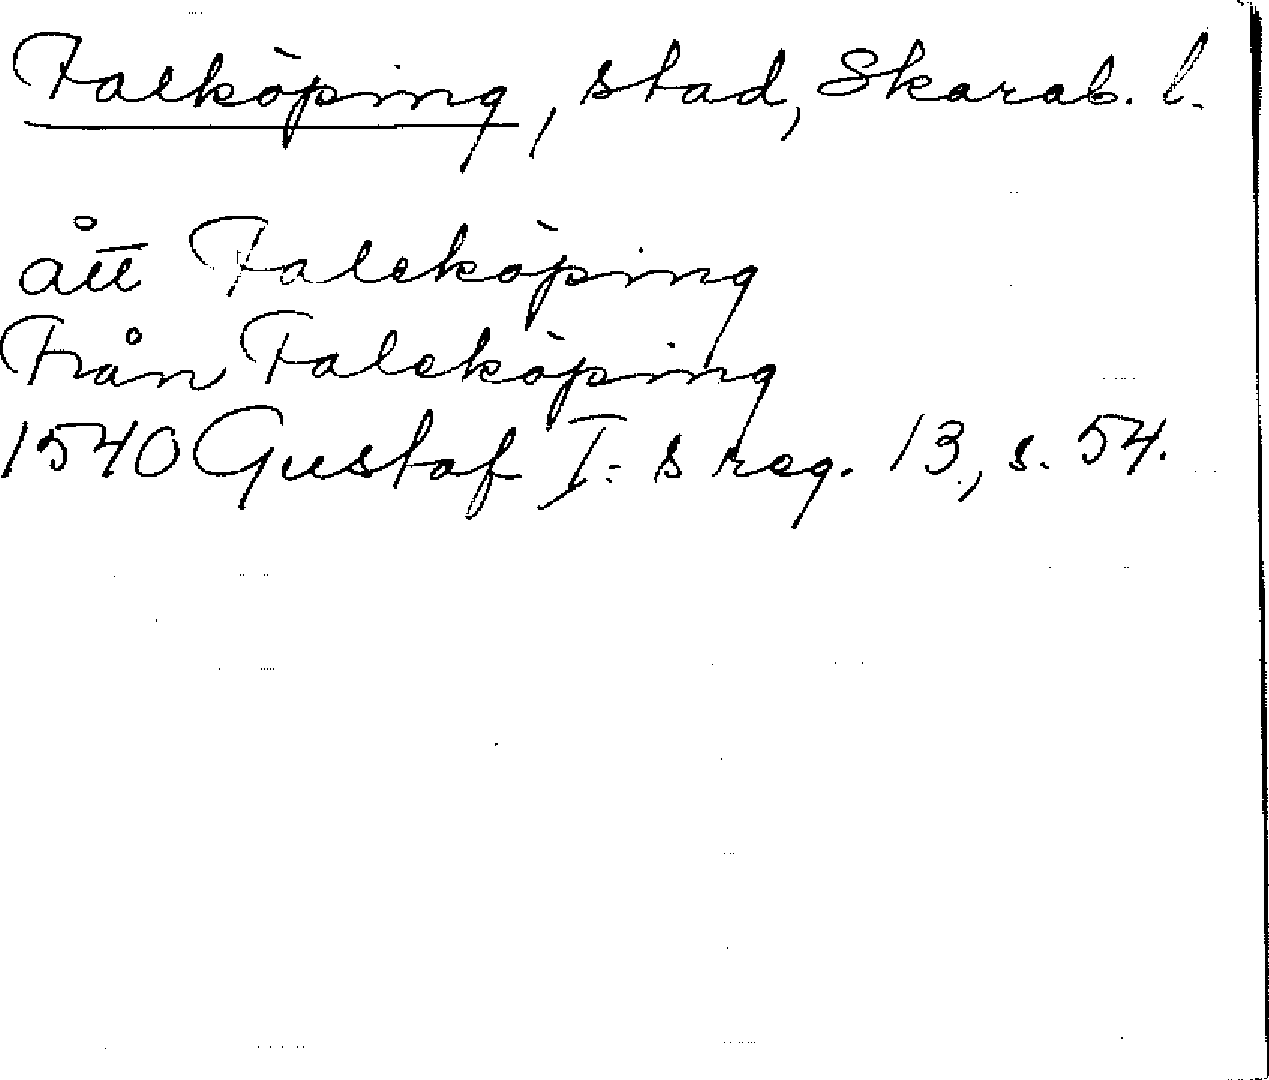 Falköping, stad, Skarab. l.
ått Faleköping
Från Faleköping
1540 Gustaf I:s reg. 13, s. 54.